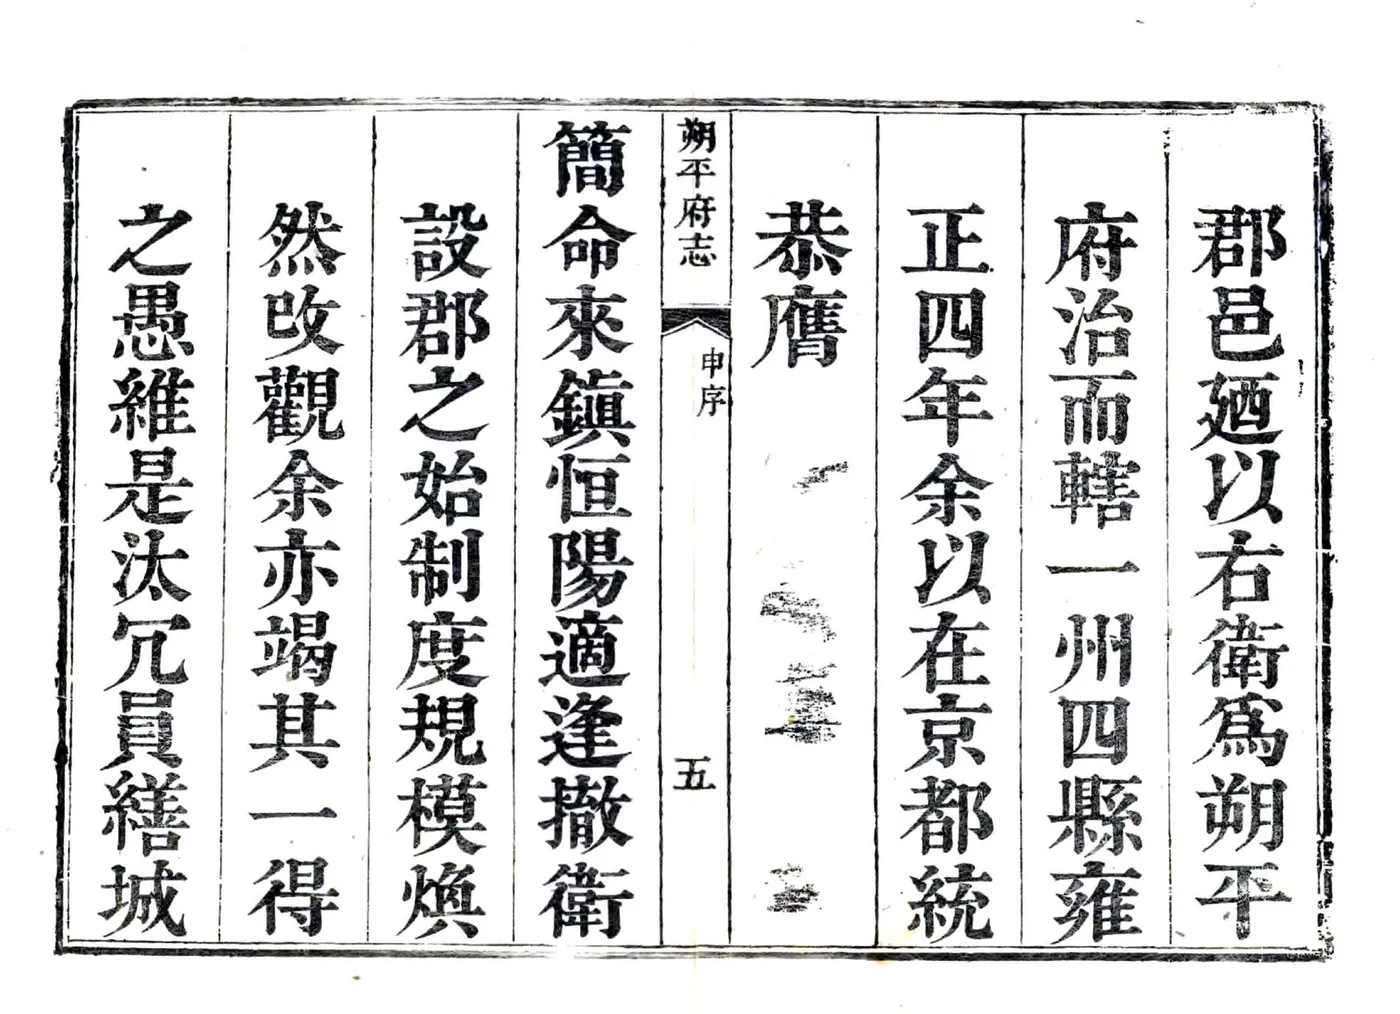 郡邑廼以右衛爲朔平
府治而轄一州四縣雍
正四年余以在京都統
恭膺
朔平府志
申序
五
簡命來鎮恒陽適逢撤衛
設郡之始制度規模煥
然改觀余亦竭其一得
之愚維是汰冗員繕城